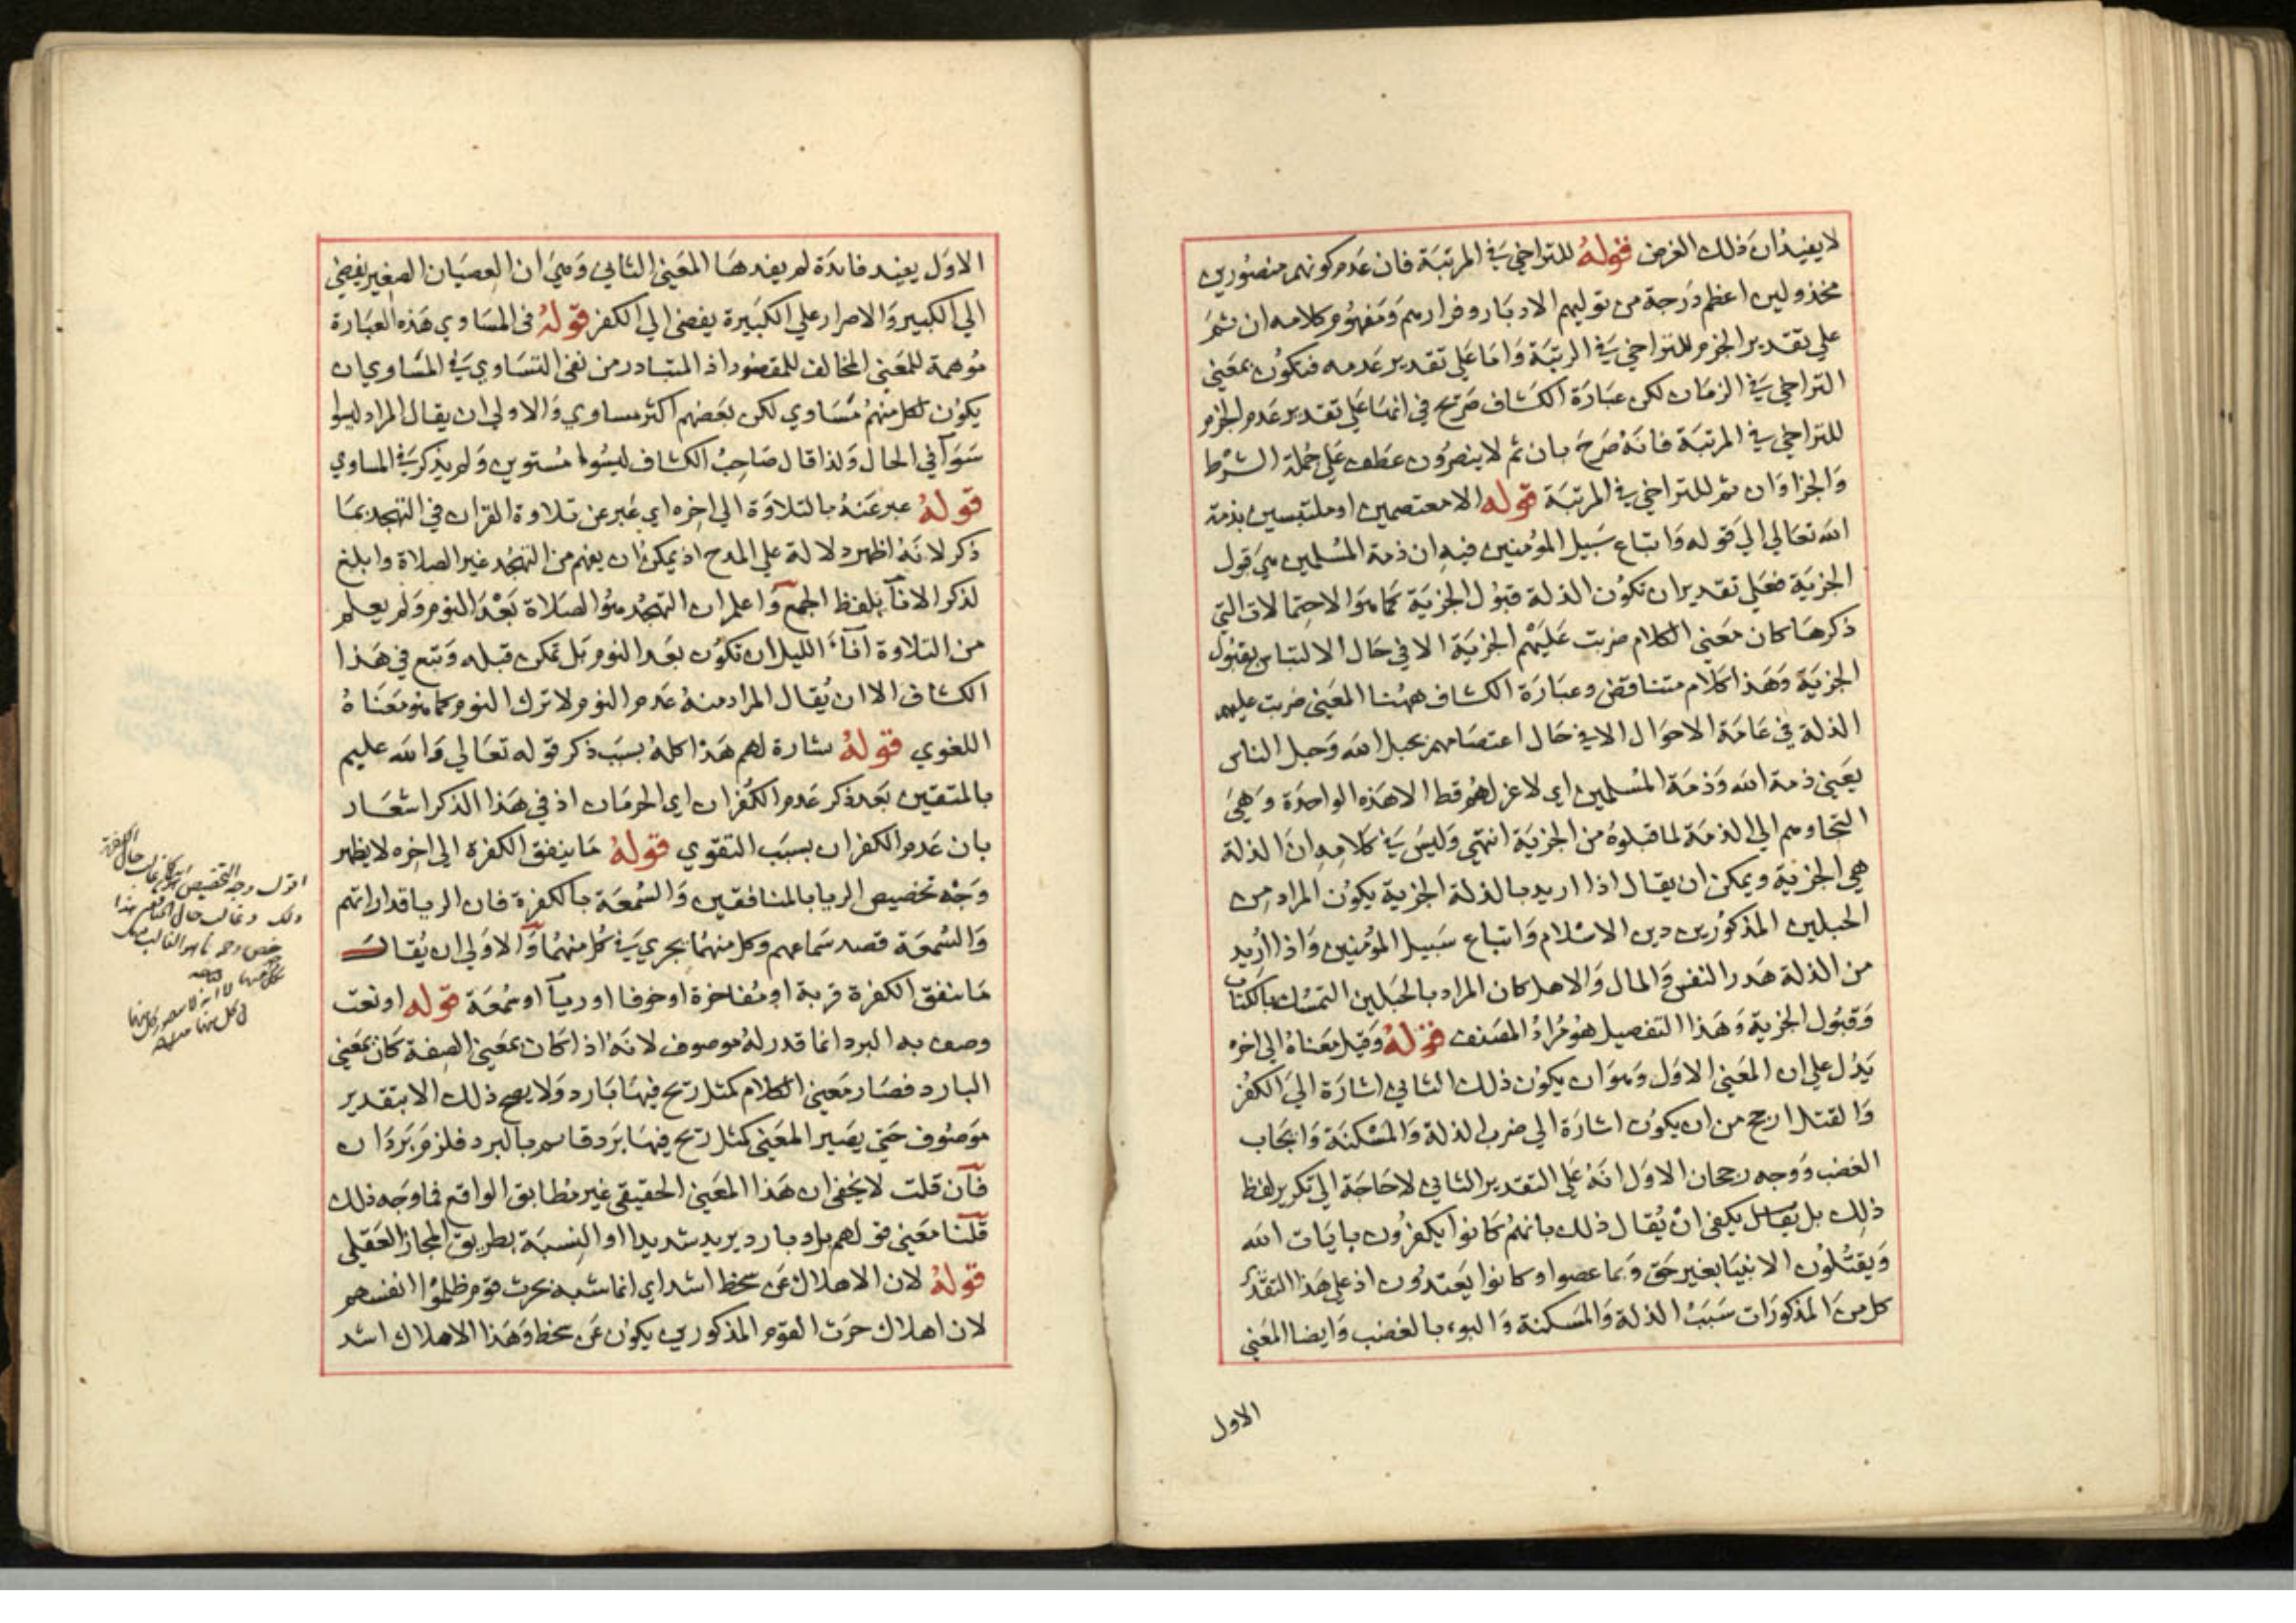 لا يفيد ان ذلك الغرض قوله للتراخي في المرتبة فان عدم كونهم منصورين
مخذولين اعظم درجة من توليهم الادبار وفرارهم ومفهوم كلامه ان ثم
علي تقدير الجزم للتراخي في الرتبة واما علي تقدير عدمه فتكون بمعني
التراخي في الزمان لكن عبارة الكشاف صريح في انها علي تقدير عدم الجزم
للتراخي في المرتبة فانه صرح بان ثم لا ينصرون عطف علي جملة الشرط
والجزاء وان ثم للتراخي في المرتبة قوله الا معتصمين او ملتبسين بذمة
الله تعالي الي قوله واتباع سبيل المؤمنين فيه ان ذمة المسلمين هي قبول
الجزية فعلي تقدير ان تكون الذلة قبول الجزية كما هو الاحتمالات التي
ذكرها كان معني الكلام ضربت عليهم الجزية الا في حال الالتباس بقبول
الجزية وهذا كلام متناقض وعبارة الكشاف ههنا المعني ضربت عليهم
الذلة في عامة الاحوال الا في حال اعتصامهم بحبل الله وحبل الناس
يعني ذمة الله وذمة المسلمين اي لا عز لهم قط الا هذه الواحدة وهي
التجاوهم الي الذمة لما قبلوه من الجزية انتهي وليس في كلامه ان الذلة
هي الجزية ويمكن ان يقال اذا اريد بالذلة الجزية يكون المراد من
الحبلين المذكورين دين الاسلام واتباع سبيل المؤمنين واذا اريد
من الذلة هدر النفس والمال والاهل كان المراد بالحبلين التمسك بالكتاب
وقبول الجزية وهذا التفصيل هو مراد المصنف قوله وقيل معناه الي اخره
يدل علي ان المعني الاول وهو ان يكون ذلك الثاني اشارة الي الكفر
والقتل ارجح من ان يكون اشارة الي ضرب الذلة والمسكنة وايجاب
الغضب ووجه رجحان الاول انه علي التقدير الثاني لا حاجة الي تكرير لفظ
ذلك بل يقال يكفي ان يقال ذلك بانهم كانوا يكفرون بايات الله
ويقتلون الانبيا بغير حق وبما عصوا وكانوا يعتدون اذ علي هذا التقدير
كل من المذكورات سبب الذلة والمسكنة والبوء بالغضب وايضا المعني
الاول
الاول يفيد فائدة لم يفدها المعني الثاني وهي ان العصيان الصغير يفضي
الي الكبير والاصرار علي الكبيرة يفضي الي الكفر قوله في المساوي هذه العبارة
موهمة للمعني المخالف للمقصود اذ المتبادر من نفي التساوي في المساوي ان
يكون لكل منهم مساوي لكن بعضهم اكثر مساوي والاولي ان يقال المراد ليسوا
سوآ في الحال ولذا قال صاحب الكشاف ليسوا مستوين ولم يذكر في المساوي
قوله عبر عنه بالتلاوة الي اخره اي عبر عن تلاوة القران في التهجد بما
ذكر لانه اظهر دلالة علي المدح اذ يمكن ان يفهم من التهجد غير الصلاة وابلغ
لذكر الانآ بلفظ الجمع واعلم ان التهجد هو الصلاة بعد النوم ولم يعلم
من التلاوة آناء الليل ان تكون بعد النوم بل تمكن قبله وتبع في هذا
الكشاف الا ان يقال المراد منه عدم النوم لا ترك النوم كما هو معناه
اللغوي قوله بشارة لهم هذا كله بسبب ذكر قوله تعالي والله عليم
بالمتقين بعد ذكر عدم الكفران اي الحرمان اذ في هذا الذكر اشعار
بان عدم الكفران بسبب التقوي قوله ما ينفق الكفرة الي اخره لا يظهر
وجه تخصيص الريا بالمنافقين والسمعة بالكفرة فان الريا قد اراتهم
والسمعة قصد سماعهم وكل منهما يجري في كل منهما والاولي ان يقال
ما ينفق الكفرة قربة او مفاخرة او خوفا او ريآ او سمعة قوله او نعت
وصف به البرد انما قدر له موصوف لانه اذا كان بمعني الصفة كان بمعني
البارد فصار معني الكلام كمثل ريح فيها بارد ولا يصح ذلك الا بتقدير
موصوف حتي يصير المعني كمثل ريح فيها برد قاسم بالبرد فلزم برد ان
فان قلت لا يخفي ان هذا المعني الحقيقي غير مطابق الواقع فما وجه ذلك
قلنا معني قولهم برد بارد يريد شديدا او النسبة بطريق المجاز العقلي
قوله لان الاهلاك عن سخط اشد اي انما شبه بحرث قوم ظلموا انفسهم
لان اهلاك حرث القوم المذكورين يكون عن سخط وهذا الاهلاك اشد
اقول وجه التخصيص
ذلك وغالب حال